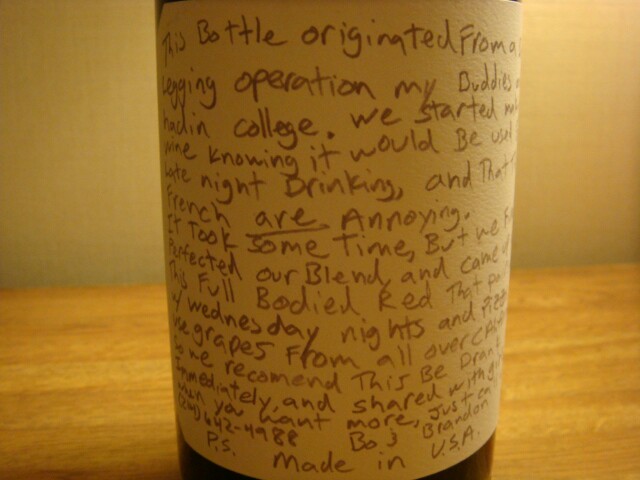 This Bottle originated From a
Legging operation my Buddies
had in college. We started
wine knowing it would Be used
Late night Drinking, and That
French are Annoying.
It Took some Time, But we
Perfected our Blend, and came
This Full Bodied Red That
w/ wednesday nights and Pizza
use grapes From all over CA
So we recomend This Be Drank
Immediately, and shared with
when you want more, just call
(214) 642-4988 Bo & Brandon
P.S. Made in U.S.A.